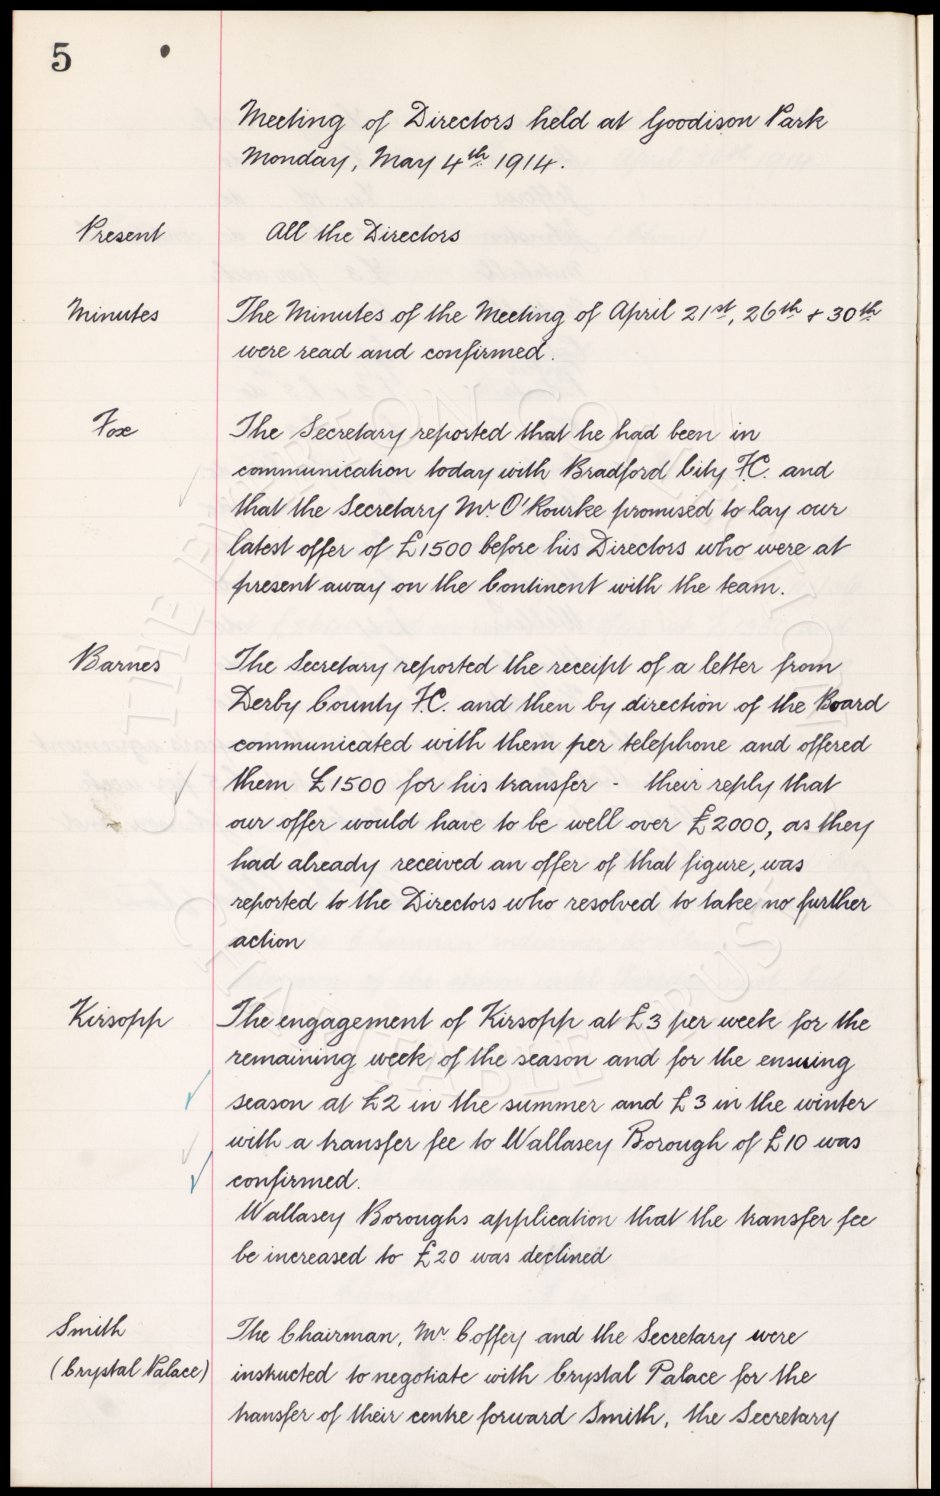 5
Meeting of Directors held at Goodison Park
Monday, May 4th 1914.
Present
All the Directors
Minutes
The Minutes of the Meeting of April 21st, 26th & 30th
were read and confirmed.
Fox
The Secretary reported that he had been in
communication today with Bradford City F.C. and
that the Secretary Mr. O'Rourke promised to lay our
latest offer of £1500 before his Directors who were at
present away on the Continent with the team.
Barnes
The Secretary reported the receipt of a letter from
Derby County F.C. and then by direction of the Board
communicated with them per telephone and offered
them £1500 for his transfer - their reply that
our offer would have to be well over £2000, as they
had already received an offer of that figure, was
reported to the Directors who resolved to take no further
action
Kirsopp
The engagement of Kirsopp at £3 per week for the
remaining week of the season and for the ensuing
season at £2 in the summer and £3 in the winter
with a transfer fee to Wallasey Borough of £10 was
confirmed.
Wallasey Boroughs application that the transfer fee
be increased to £20 was declined
Smith
(Crystal Palace)
The Chairman, Mr. Coffey and the Secretary were
instructed to negotiate with Crystal Palace for the
transfer of their centre forward Smith, the Secretary
THE EVERTON COLLECTION
CHARITABLE TRUST